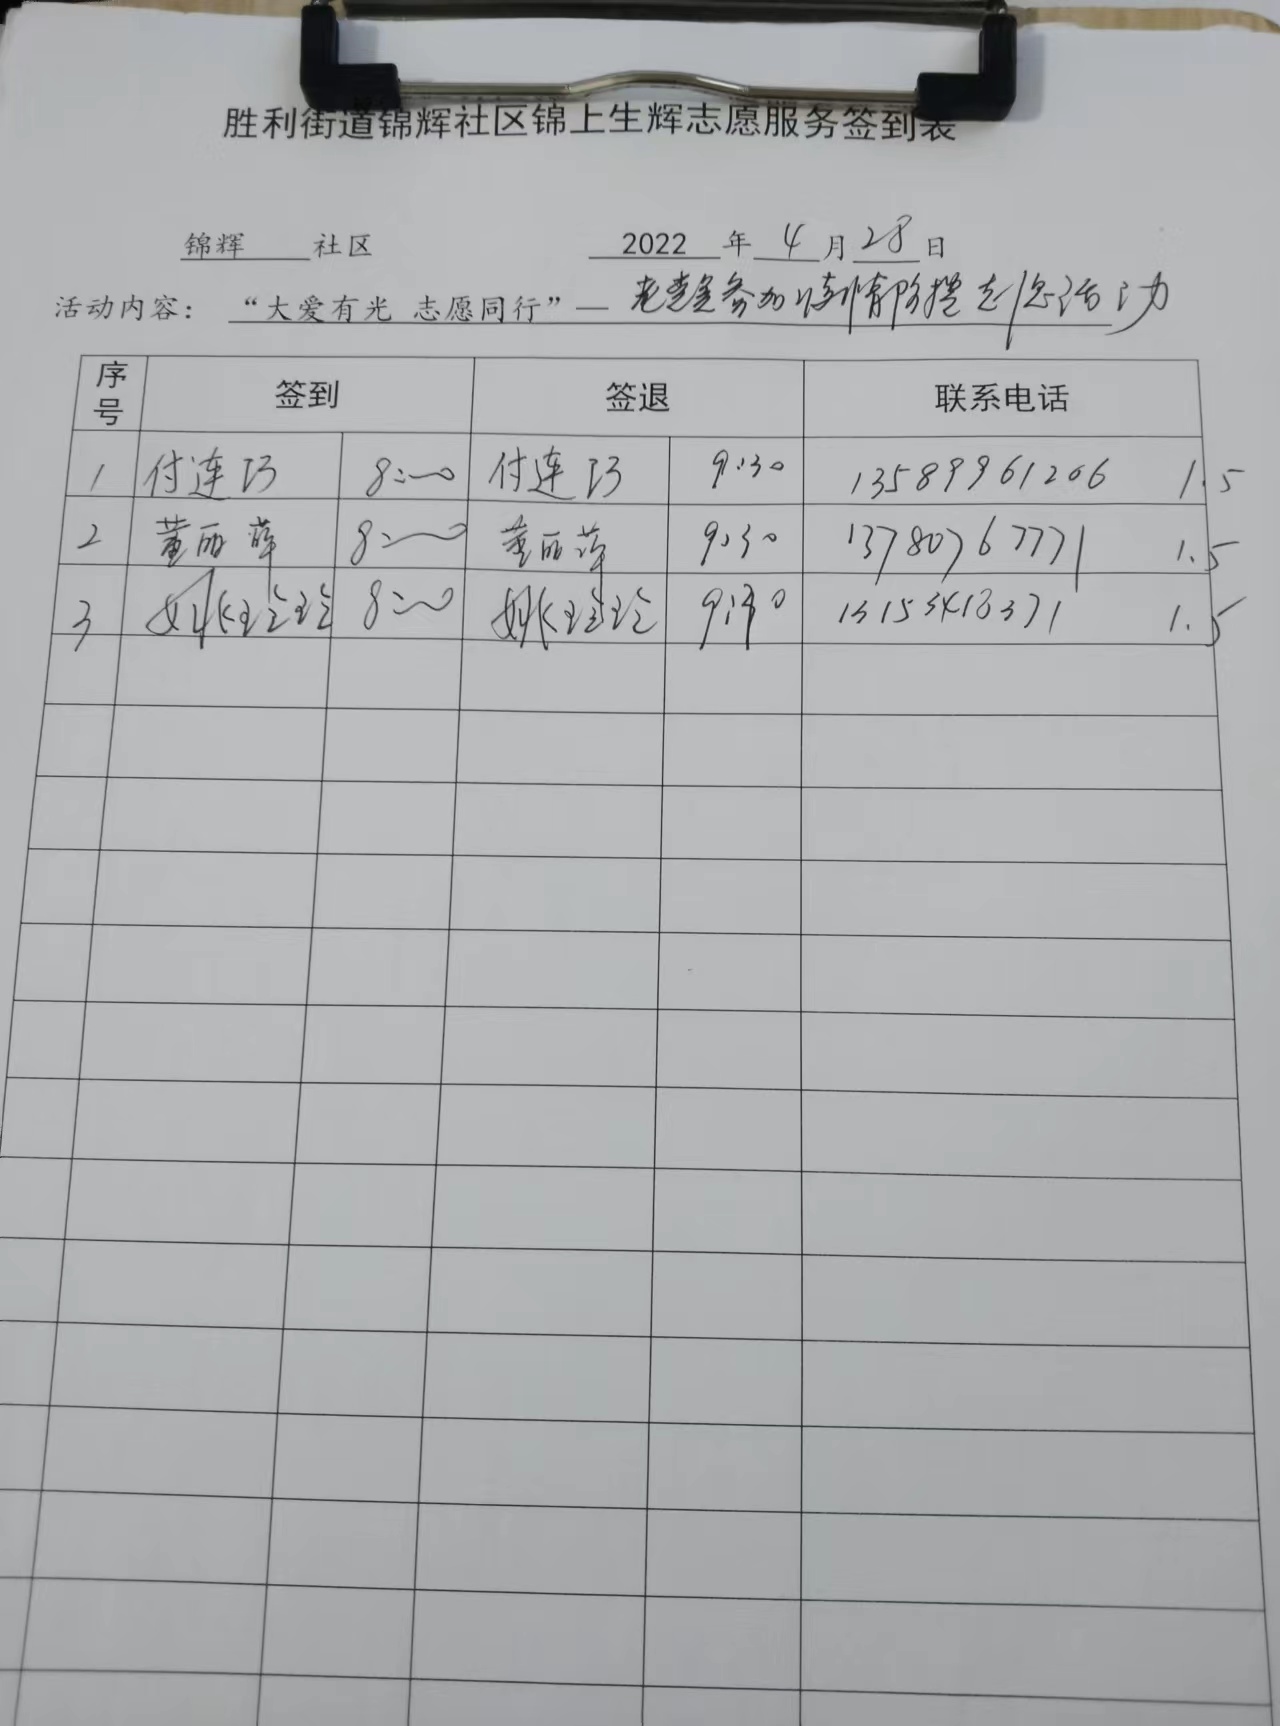 胜利街道锦辉社区锦上生辉志愿服务签到表
锦辉 社区 2022 年 4 月 28 日
活动内容：“大爱有光 志愿同行”— 老党员参加疫情防控志愿活动
序号 签到 签退 联系电话
1 付连巧 8:00 付连巧 9:30 13589961206 1.5
2 董丽萍 8:00 董丽萍 9:30 13780767771 1.5
3 姚玲玲 8:00 姚玲玲 9:30 13153413371 1.5